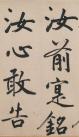 汝前寔銘
汝心敢告